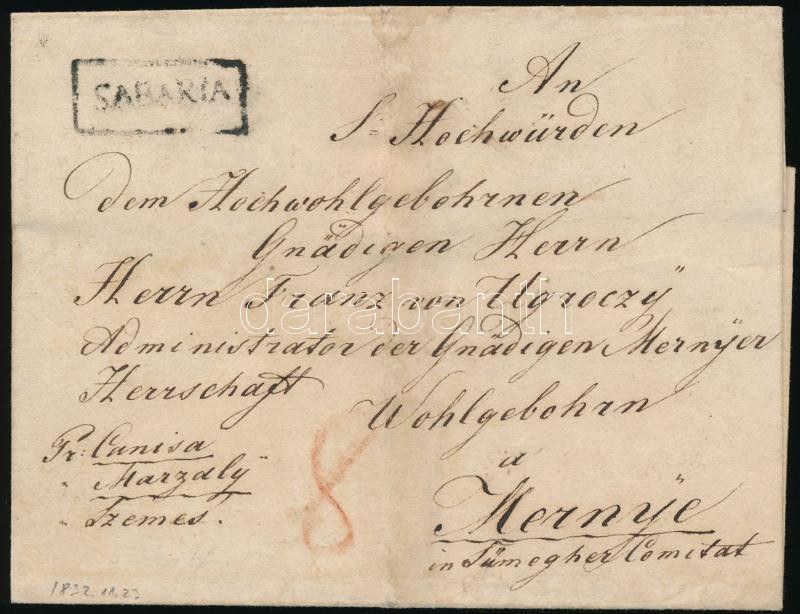 SABARIA
An
S= Hochwürden
dem Hochwohlgebohrnen
Gnädigen Herrn
Herrn Franz von Ugroczÿ
Administrator der Gnädigen Mernÿer
Herrschaft
Wohlgebohrn
Pr: Canisa
" Marzalÿ
" Szemes.
8
a
Mernÿe
in Sümegher Comitat
1832. 11. 23
darabanth